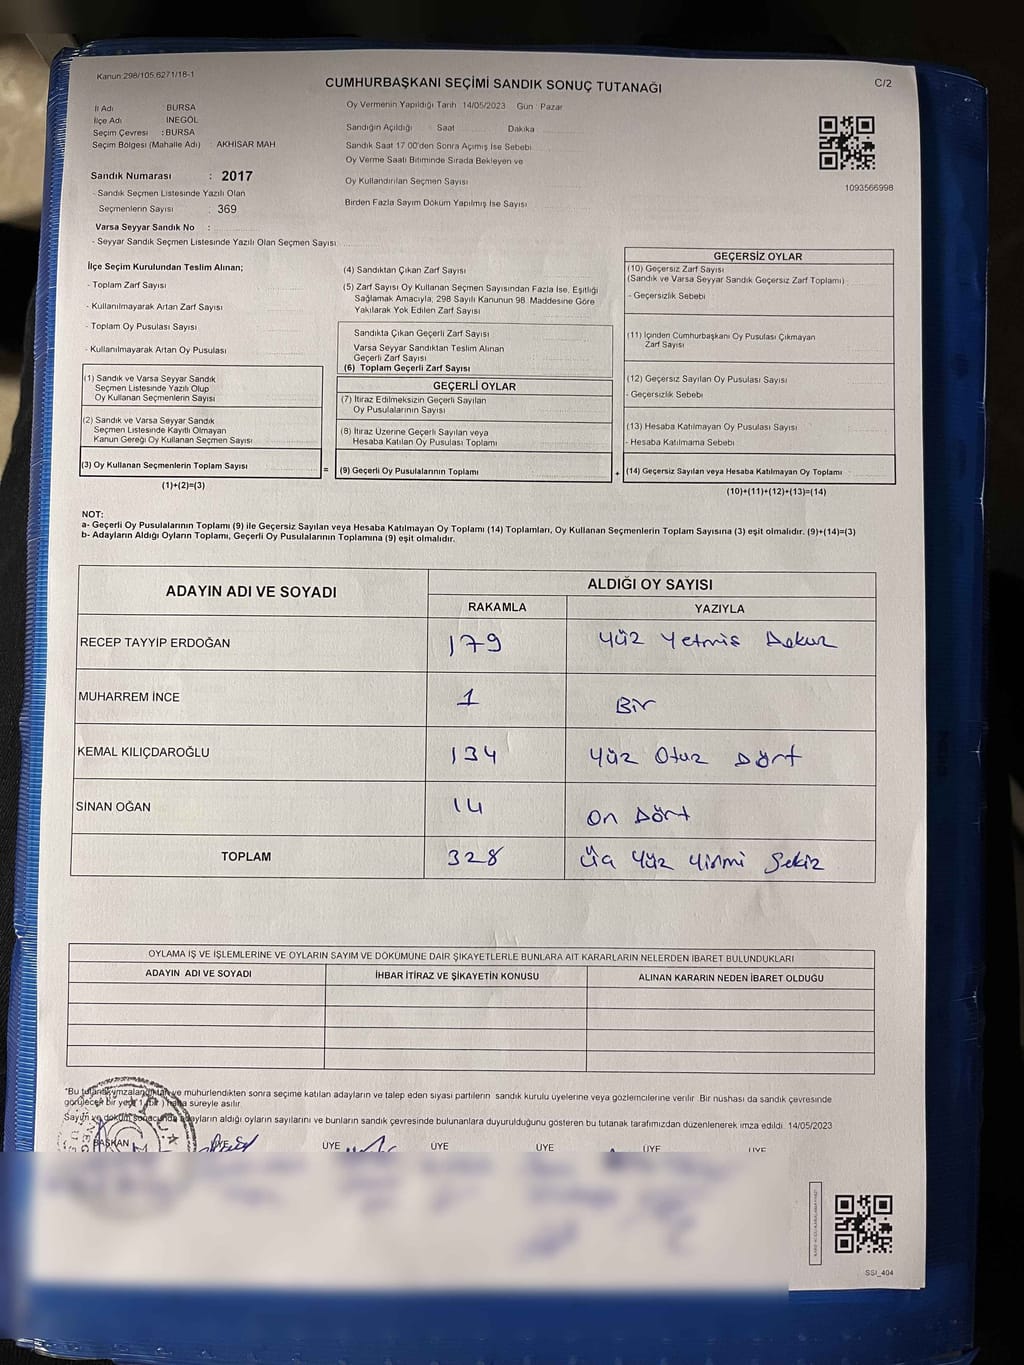 Kanun:298/105,6271/18-1
CUMHURBAŞKANI SEÇİMİ SANDIK SONUÇ TUTANAĞI
C/2
İl Adı : BURSA
İlçe Adı : İNEGÖL
Seçim Çevresi : BURSA
Seçim Bölgesi (Mahalle Adı) : AKHİSAR MAH
Sandık Numarası : 2017
- Sandık Seçmen Listesinde Yazılı Olan
Seçmenlerin Sayısı : 369
Varsa Seyyar Sandık No :
- Seyyar Sandık Seçmen Listesinde Yazılı Olan Seçmen Sayısı
Oy Vermenin Yapıldığı Tarih 14/05/2023 Gün Pazar
Sandığın Açıldığı Saat Dakika
Sandık Saat 17:00'den Sonra Açımış İse Sebebi
Oy Verme Saati Bitiminde Sırada Bekleyen ve
Oy Kullandırılan Seçmen Sayısı
Birden Fazla Sayım Döküm Yapılmış İse Sayısı
1093566998
İlçe Seçim Kurulundan Teslim Alınan;
- Toplam Zarf Sayısı
- Kullanılmayarak Artan Zarf Sayısı
- Toplam Oy Pusulası Sayısı
- Kullanılmayarak Artan Oy Pusulası
(1) Sandık ve Varsa Seyyar Sandık
Seçmen Listesinde Yazılı Olup
Oy Kullanan Seçmenlerin Sayısı
(2) Sandık ve Varsa Seyyar Sandık
Seçmen Listesinde Kayıtlı Olmayan
Kanun Gereği Oy Kullanan Seçmen Sayısı
(3) Oy Kullanan Seçmenlerin Toplam Sayısı
(1)+(2)=(3)
(4) Sandıktan Çıkan Zarf Sayısı
(5) Zarf Sayısı Oy Kullanan Seçmen Sayısından Fazla İse, Eşitliği
Sağlamak Amacıyla; 298 Sayılı Kanunun 98. Maddesine Göre
Yakılarak Yok Edilen Zarf Sayısı
Sandıkta Çıkan Geçerli Zarf Sayısı
Varsa Seyyar Sandıktan Teslim Alınan
Geçerli Zarf Sayısı
(6) Toplam Geçerli Zarf Sayısı
GEÇERLİ OYLAR
(7) İtiraz Edilmeksizin Geçerli Sayılan
Oy Pusulalarının Sayısı
(8) İtiraz Üzerine Geçerli Sayılan veya
Hesaba Katılan Oy Pusulası Toplamı
= (9) Geçerli Oy Pusulalarının Toplamı
GEÇERSİZ OYLAR
(10) Geçersiz Zarf Sayısı
(Sandık ve Varsa Seyyar Sandık Geçersiz Zarf Toplamı)
- Geçersizlik Sebebi
(11) İçinden Cumhurbaşkanı Oy Pusulası Çıkmayan
Zarf Sayısı
(12) Geçersiz Sayılan Oy Pusulası Sayısı
- Geçersizlik Sebebi
(13) Hesaba Katılmayan Oy Pusulası Sayısı
- Hesaba Katılmama Sebebi
+ (14) Geçersiz Sayılan veya Hesaba Katılmayan Oy Toplamı
(10)+(11)+(12)+(13)=(14)
NOT:
a- Geçerli Oy Pusulalarının Toplamı (9) ile Geçersiz Sayılan veya Hesaba Katılmayan Oy Toplamı (14) Toplamları, Oy Kullanan Seçmenlerin Toplam Sayısına (3) eşit olmalıdır. (9)+(14)=(3)
b- Adayların Aldığı Oyların Toplamı, Geçerli Oy Pusulalarının Toplamına (9) eşit olmalıdır.
ADAYIN ADI VE SOYADI
ALDIĞI OY SAYISI
RAKAMLA YAZIYLA
RECEP TAYYİP ERDOĞAN 179 Yüz Yetmiş Dokuz
MUHARREM İNCE 1 Bir
KEMAL KILIÇDAROĞLU 134 Yüz Otuz Dört
SİNAN OĞAN 14 On Dört
TOPLAM 328 Üç Yüz Yirmi Sekiz
OYLAMA İŞ VE İŞLEMLERİNE VE OYLARIN SAYIM VE DÖKÜMÜNE DAİR ŞİKAYETLERLE BUNLARA AİT KARARLARIN NELERDEN İBARET BULUNDUKLARI
ADAYIN ADI VE SOYADI İHBAR İTİRAZ VE ŞİKAYETİN KONUSU ALINAN KARARIN NEDEN İBARET OLDUĞU
*Bu tutanak imzalandıktan ve mühürlendikten sonra seçime katılan adayların ve talep eden siyasi partilerin sandık kurulu üyelerine veya gözlemcilerine verilir. Bir nüshası da sandık çevresinde
görülecek bir yere 1 (bir) hafta süreyle asılır.
Sayım ve döküm sonucunda adayların aldığı oyların sayılarını ve bunların sandık çevresinde bulunanlara duyurulduğunu gösteren bu tutanak tarafımızdan düzenlenerek imza edildi. 14/05/2023
BAŞKAN ÜYE ÜYE ÜYE ÜYE ÜYE ÜYE
SSI_404